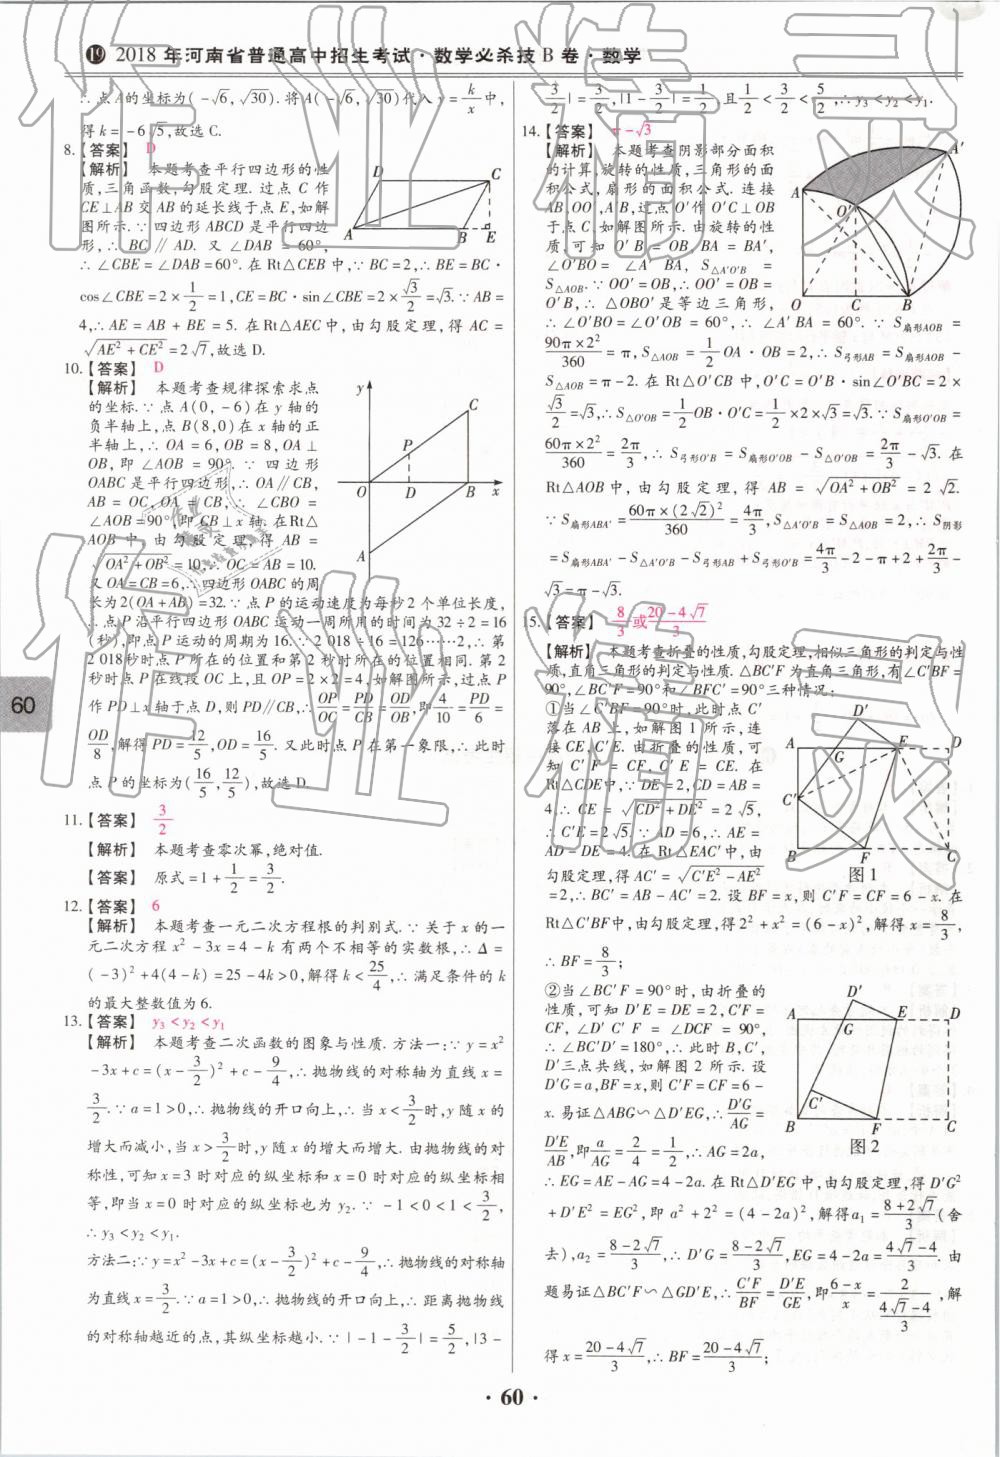 ⑲ 2018 年河南省普通高中招生考试·数学必杀技 B 卷·数学
∴点A的坐标为(-√6,√30).将A(-√6,√30)代入y=k/x中,
得k=-6√5,故选C.
8.【答案】 D
【解析】 本题考查平行四边形的性
质,三角函数,勾股定理.过点 C 作
CE⊥AB交 AB 的延长线于点E,如解
图所示.∵四边形 ABCD 是平行四边
形,∴ BC // AD. 又∠DAB = 60°,
∴∠CBE=∠DAB=60°.在Rt△CEB中,∵BC=2,∴BE=BC·
cos∠CBE=2×1/2=1,CE=BC·sin∠CBE=2×√3/2=√3.∵AB=
4,∴AE=AB+BE=5.在Rt△AEC中,由勾股定理,得AC=
√AE²+CE²=2√7,故选D.
D C A B E
10.【答案】 D
【解析】 本题考查规律探索求点
的坐标.∵点A(0,-6)在y轴的
负半轴上,点B(8,0)在x轴的正
半轴上,∴OA=6,OB=8,OA⊥
OB,即∠AOB=90°.∵四边形
OABC是平行四边形,∴OA//CB,
AB=OC,OA=CB,∴∠CBO=
∠AOB=90°,即CB⊥x轴.在Rt△
AOB中,由勾股定理,得AB=
√OA²+OB²=10,∴OC=AB=10.
又OA=CB=6,∴四边形OABC的周
长为2(OA+AB)=32.∵点P的运动速度为每秒2个单位长度,
∴点P沿平行四边形OABC运动一周所用的时间为32÷2=16
(秒),即点P运动的周期为16.∵2 018÷16=126……2,∴第
2 018秒时点P所在的位置和第2秒时所在的位置相同.第2
秒时点P在线段OC上,且OP=2×2=4,如解图所示,过点P
作PD⊥x轴于点D,则PD//CB,∴OP/OC=PD/CB=OD/OB,即4/10=PD/6=
OD/8,解得PD=12/5,OD=16/5.又此时点P在第一象限,∴此时
点P的坐标为(16/5,12/5),故选D.
y C P O D B x A
11.【答案】 3/2
【解析】 本题考查零次幂,绝对值.
【答案】 原式=1+1/2=3/2.
12.【答案】 6
【解析】 本题考查一元二次方程根的判别式.∵关于x的一
元二次方程x²-3x=4-k有两个不相等的实数根,∴Δ=
(-3)²+4(4-k)=25-4k>0,解得k<25/4,∴满足条件的k
的最大整数值为6.
13.【答案】 y₃<y₂<y₁
【解析】 本题考查二次函数的图象与性质.方法一:∵y=x²
-3x+c=(x-3/2)²+c-9/4,∴抛物线的对称轴为直线x=
3/2.∵a=1>0,∴抛物线的开口向上,∴当x<3/2时,y随x的
增大而减小,当x>3/2时,y随x的增大而增大.由抛物线的对
称性,可知x=3时对应的纵坐标和x=0时对应的纵坐标相
等,即当x=0时对应的纵坐标也为y₂.∵-1<0<1<3/2,
∴y₃<y₂<y₁.
方法二:∵y=x²-3x+c=(x-3/2)²+c-9/4,∴抛物线的对称轴
为直线x=3/2.∵a=1>0,∴抛物线的开口向上,∴距离抛物线
的对称轴越近的点,其纵坐标越小.∵|-1-3/2|=5/2,|3-
3/2|=3/2,|1-3/2|=1/2,且1/2<3/2<5/2,∴y₃<y₂<y₁.
14.【答案】 π-√3
【解析】 本题考查阴影部分面积
的计算,旋转的性质,三角形的面
积公式,扇形的面积公式.连接
AB,OO′,A′B,过点O′作O′C⊥OB
于点C,如解图所示.由旋转的性
质,可知O′B=OB,BA=BA′,
∠O′BO=∠A′BA,S△A′O′B=
S△AOB.∵OO′=OB,∴OO′=OB=
O′B,∴△OBO′是等边三角形,
∴∠O′BO=∠O′OB=60°,∴∠A′BA=60°.∵S扇形AOB=
90π×2²/360=π,S△AOB=1/2OA·OB=2,∴S弓形AB=S扇形AOB-
S△AOB=π-2.在Rt△O′CB中,O′C=O′B·sin∠O′BC=2×
√3/2=√3,∴S△O′OB=1/2OB·O′C=1/2×2×√3=√3.∵S扇形O′OB=
60π×2²/360=2π/3,∴S弓形O′B=S扇形O′OB-S△O′OB=2π/3-√3.在
Rt△AOB中,由勾股定理,得AB=√OA²+OB²=2√2.
∵S扇形ABA′=60π×(2√2)²/360=4π/3,S△A′O′B=S△AOB=2,∴S阴影
=S扇形ABA′-S△A′O′B-S弓形AB+S弓形O′B=4π/3-2-π+2+2π/3-
√3=π-√3.
A′ A O′ O C B
5.【答案】 8/3或20-4√7/3
【解析】 本题考查折叠的性质,勾股定理,相似三角形的判定与性
质,直角三角形的判定与性质.△BC′F为直角三角形,有∠C′BF=
90°,∠BC′F=90°和∠BFC′=90°三种情况:
①当∠C′BF=90°时,此时点C′
落在AB上,如解图1所示,连
接CE,C′E.由折叠的性质,可
知C′F=CF,C′E=CE.在
Rt△CDE中,∵DE=2,CD=AB=
4,∴CE=√CD²+DE²=2√5,
∴C′E=2√5.∵AD=6,∴AE=
AD-DE=4.在Rt△EAC′中,由
勾股定理,得AC′=√C′E²-AE²
=2,∴BC′=AB-AC′=2.设BF=x,则C′F=CF=6-x.在
Rt△C′BF中,由勾股定理,得2²+x²=(6-x)²,解得x=8/3,
∴BF=8/3;
D′ A E D G C′ B F C
图1
②当∠BC′F=90°时,由折叠的
性质,可知D′E=DE=2,C′F=
CF,∠D′C′F=∠DCF=90°,
∴∠BC′D′=180°,∴此时B,C′,
D′三点共线,如解图2所示.设
D′G=a,BF=x,则C′F=CF=6-
x.易证△ABG∽△D′EG,∴D′G/AG=
D′E/AB,即a/AG=2/4=1/2,∴AG=2a,
∴EG=AE-AG=4-2a.在Rt△D′EG中,由勾股定理,得D′G²
+D′E²=EG²,即a²+2²=(4-2a)²,解得a₁=8+2√7/3(舍
去),a₂=8-2√7/3,∴D′G=8-2√7/3,EG=4-2a=4√7-4/3.由
题易证△BC′F∽△GD′E,∴C′F/BF=D′E/GE,即6-x/x=2/(4√7-4/3),解
得x=20-4√7/3,∴BF=20-4√7/3;
D′ A G E D C′ B F C
图2
60
· 60 ·
作业精灵
作业精灵